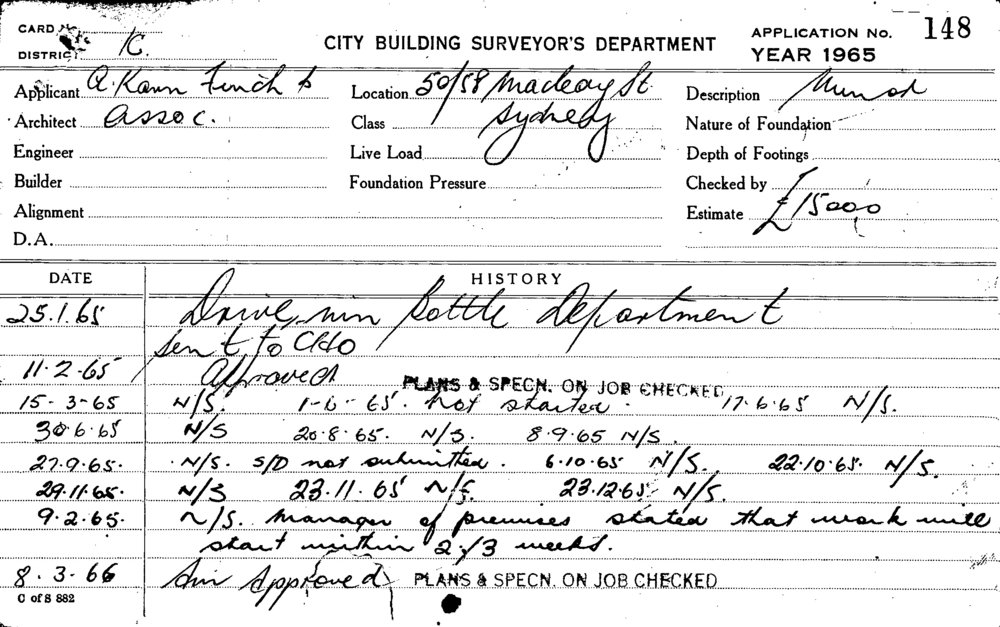 CARD No.
DISTRICT K.
CITY BUILDING SURVEYOR'S DEPARTMENT
APPLICATION No. 148
YEAR 1965
Applicant A. Kann Finch &
Architect Assoc.
Engineer
Builder
Alignment
D.A.
Location 50/58 Macleay St
Class Sydney
Live Load
Foundation Pressure
Description
Nature of Foundation
Depth of Footings
Checked by
Estimate £15000
DATE HISTORY
25.1.65 Drive in Bottle Department
Sent to CHO
11-2-65 Approved PLANS & SPECN. ON JOB CHECKED
15-3-65 N/S. 1-6-65. Not started. 17.6.65 N/S.
30.6.65 N/S 20.8.65. N/S. 8.9.65 N/S.
27.9.65. N/S. S/D not submitted. 6.10.65 N/S. 22.10.65. N/S.
29.11.65. N/S 23.11.65 N/S. 23.12.65 N/S.
9.2.65. N/S. Manager of premises stated that work will
start within 2/3 weeks.
8.3.66 Approved PLANS & SPECN. ON JOB CHECKED
C of S 882